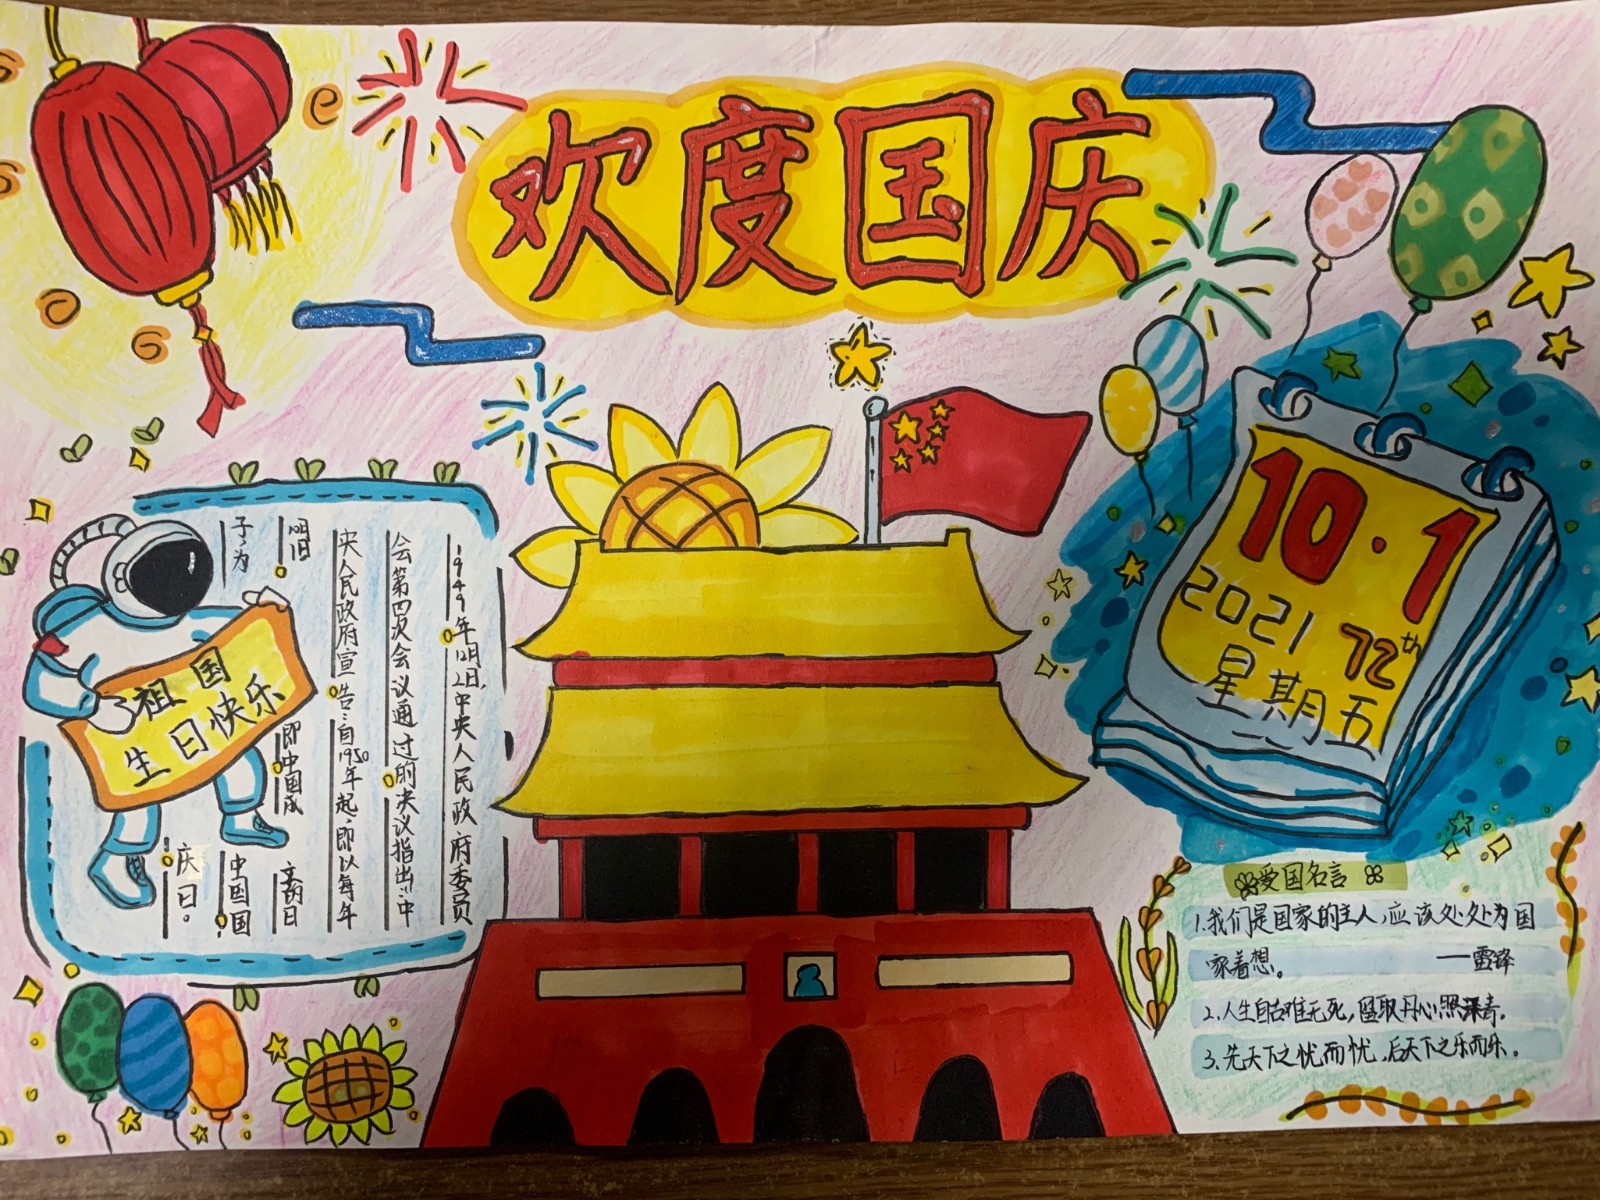 欢度国庆
10·1
2021
72th
星期五
祖国
生日快乐
1949年12月2日,中央人民政府委员
会第四次会议通过的决议指出:中
央人民政府宣告:自1950年起,即以每年
即中国成
庆日。
中国国
爱国名言
1.我们是国家的主人,应该处处为国
家着想。 —雷锋
2.人生自古谁无死,留取丹心照汗青。
3.先天下之忧而忧,后天下之乐而乐。